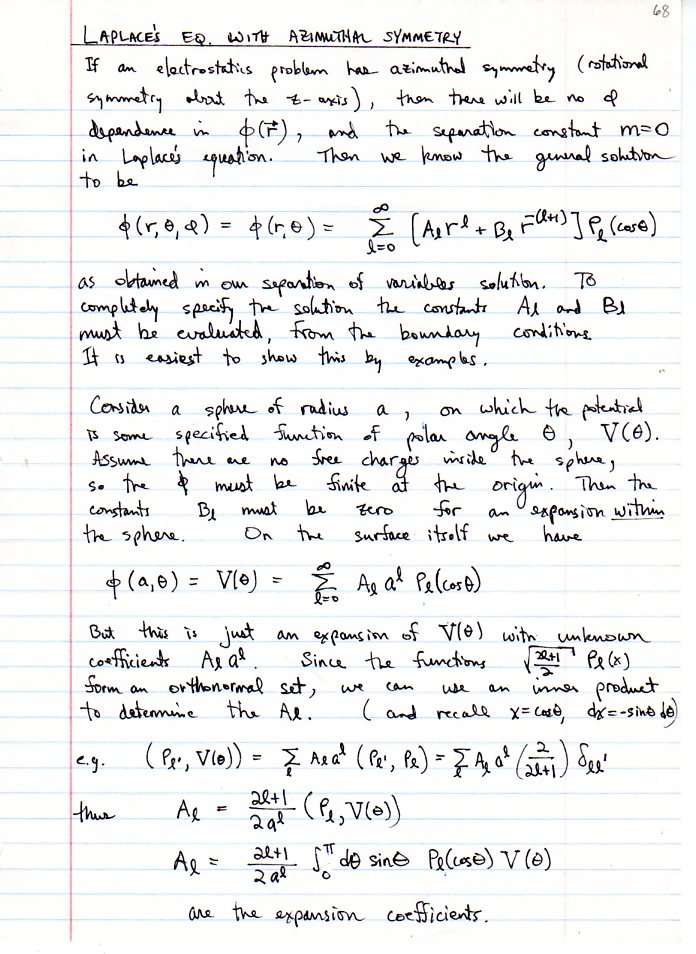 68
LAPLACE'S EQ. WITH AZIMUTHAL SYMMETRY
If an electrostatics problem has azimuthal symmetry (rotational
symmetry about the z-axis), then there will be no φ
dependence in ϕ(r⃗), and the separation constant m=0
in Laplace's equation. Then we know the general solution
to be
ϕ(r, θ, φ) = ϕ(r, θ) = ∞∑l=0 [Aₗ rˡ + Bₗ r^-(l+1)] Pₗ(cosθ)
as obtained in our separation of variables solution. To
completely specify the solution the constants Aₗ and Bₗ
must be evaluated, from the boundary conditions
It is easiest to show this by examples.
Consider a sphere of radius a, on which the potential
is some specified function of polar angle θ, V(θ).
Assume there are no free charges inside the sphere,
so the ϕ must be finite at the origin. Then the
constants Bₗ must be zero for an expansion within
the sphere. On the surface itself we have
ϕ(a,θ) = V(θ) = ∞∑l=0 Aₗ aˡ Pₗ(cosθ)
But this is just an expansion of V(θ) with unknown
coefficients Aₗ aˡ. Since the functions √((2l+1)/2) Pₗ(x)
form an orthonormal set, we can use an inner product
to determine the Aₗ. (and recall x=cosθ, dx=-sinθ dθ)
e.g. (Pₗ', V(θ)) = ∑ₗ Aₗ aˡ (Pₗ', Pₗ) = ∑ₗ Aₗ aˡ (2/(2l+1)) δₗₗ'
thus Aₗ = (2l+1)/(2aˡ) (Pₗ, V(θ))
Aₗ = (2l+1)/(2aˡ) ∫₀^π dθ sinθ Pₗ(cosθ) V(θ)
are the expansion coefficients.